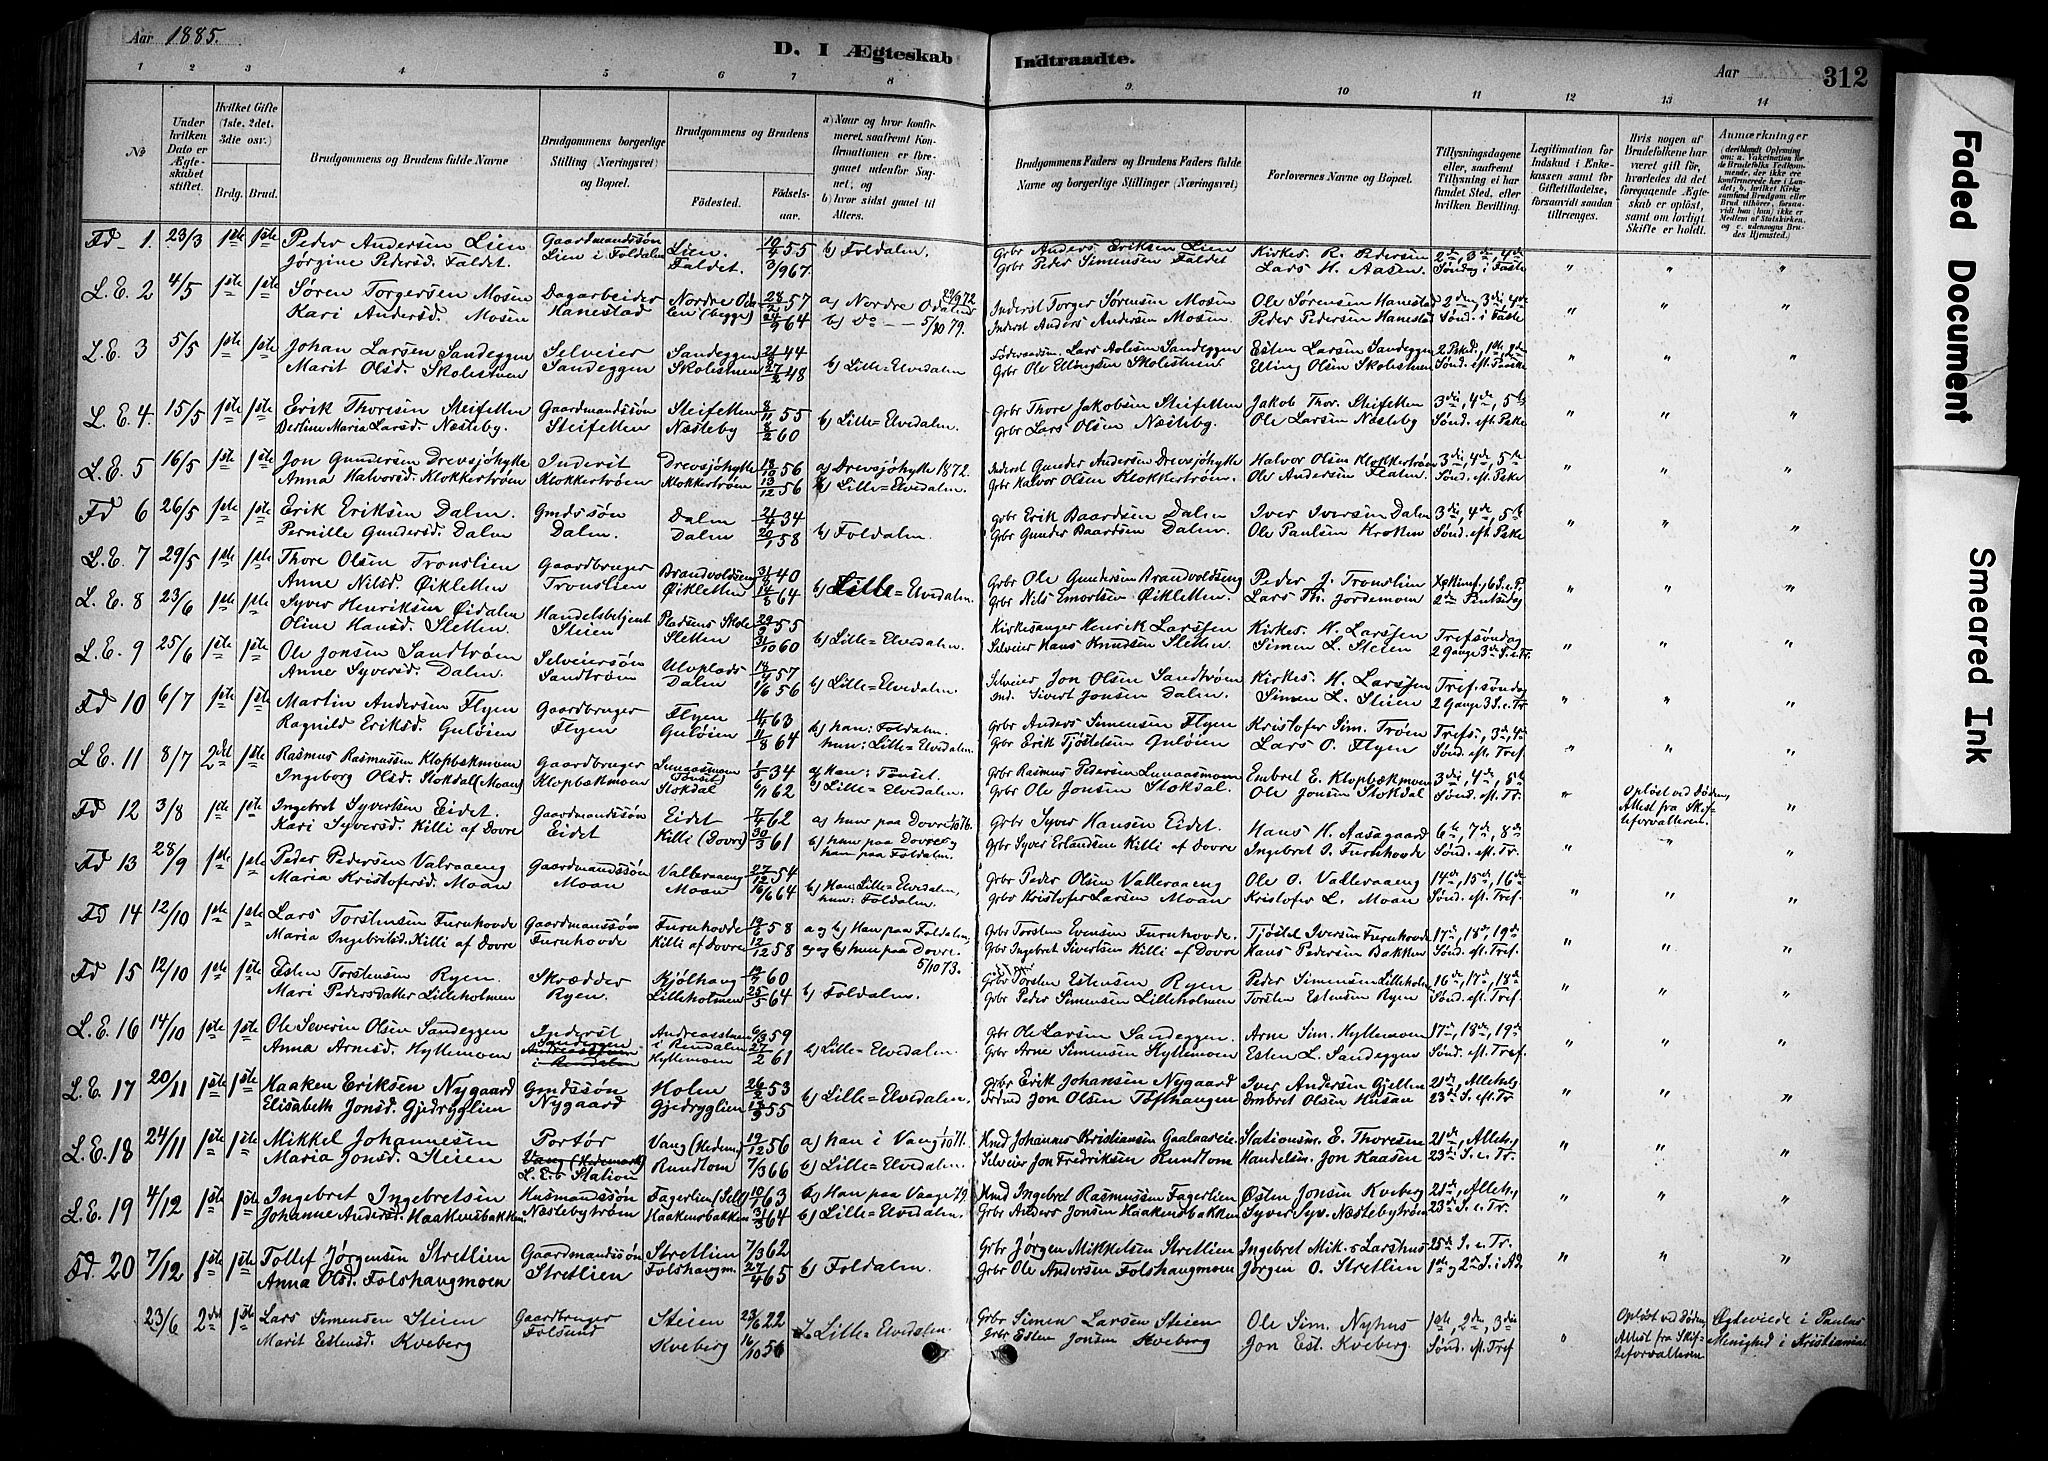 Aar 1885.
D. I Ægteskab Indtraadte.
Aar 312
1 2 3 4 5 6 7 8 9 10 11 12 13 14
№
Under hvilken Dato er Ægteskabet stiftet.
Hvilket Gifte (1ste, 2det, 3die osv.)
Brdg. Brud.
Brudgommens og Brudens fulde Navne
Brudgommens borgerlige Stilling (Næringsvei) og Bopæl.
Brudgommens og Brudens
Fødested. Fødselsaar.
a) Naar og hvor konfirmeret, saafremt Konfirmationen er foregaaet udenfor Sognet; og b) hvor sidst gaaet til Alters.
Brudgommens Faders og Brudens Faders fulde Navne og borgerlige Stillinger (Næringsvei)
Forlovernes Navne og Bopæl.
Tillysningsdagene eller, saafremt Tillysning ei har fundet Sted, efter hvilken Bevilling.
Legitimation for Indskud i Enkekassen samt for Giftetilladelse, forsaavidt saadan tiltrænges.
Hvis nogen af Brudefolkene har været gift før, hvorledes da det foregaaende Ægteskab er opløst, samt om lovligt Skifte er holdt.
Anmærkninger
Fd 1. 23/3 1ste 1ste Peder Andersen Lien Gaardmandssøn Lien 19/4 55 b) Foldalm Grbr Anders Eriksen Lien Kirkes. R. Pedersen 2den, 3die, 4de
Jørgine Pedersd. Faldet Lien i Foldalm Faldet. 3/9 67 Grbr Peder Simensen Faldet Lars H. Aasen Søndag i Faste
L.E. 2 4/5 1ste 1ste Søren Torgersen Mosen Dagarbeider Nordre Oda 28/2 57 a) Nordre Odalmd 29/9 72 Inderst Torger Sørensen Mosen Ole Sørensen Hanestad 2den, 3die, 4de
Kari Andersd. Mosen Hanestad len (begge) 24/9 64 b) Do 5/10 79. Inderst Anders Andersen Mosen Peder Pedersen Hanestad Sønd. i Faste
L.E. 3 5/5 1ste 1ste Johan Larsen Sandeggen Selveier Sandeggen 21/8 44 b) Lille=Elvedalm Lars Andersen Sandeggen Esten Larsen Sandeggen
Marit Olsd. Skolestuen Sandeggen Skolestuen 27/2 48 Grbr Ole Ellingsen Skolestuen. Elling Olsen Skolestuen Sønd. eft. Paaske
L.E. 4. 15/5 1ste 1ste Erik Thoresen Steifetten Gaardmandssøn Steifetten 8/11 55 b) Lille=Elvedalm. Grbr Thore Jakobsen Steifetten Jakob Thor. Steifetten 3die, 4de, 5te
Berline Maria Larsd. Næsteby. Steifetten Næsteby 8/2 60 Grbr Lars Olsen Næsteby. Ole Larsen Næsteby Sønd. eft. Pske
L.E. 5 16/5 1ste 1ste Jon Gundersen Drevsjøhytte Inderst Drevsjøhytte 18/10 56 a) Drevsjøhytte 1872. Inderst Gunder Andersen Drevsjøhytte Halvor Olsen Klokkertrøen 3die, 4de, 5te
Anna Halvorsd. Klokkertrøen Klokkertrøen Klokkertrøen 13/12 56 b) Lille=Elvedalm. Grbr Halvor Olsen Klokkertrøen. Ole Andersen Flalm. Sønd. eft. Pske
Fd 6 26/5 1ste 1ste Erik Eriksen Dalm. Gmdssøn Dalm 21/4 34 b) Foldalm. Grbr Erik Baardsen Dalm Iver Iversen Dalm 3die, 4de, 5te
Pernille Gundersd. Dalm Dalm. Dalm 20/1 58 Grbr Gunder Baardsen Dalm. Ole Paulsen Krokten Sønd. eft. Pske
L.E. 7 29/5 1ste 1ste Thore Olsen Tronslien Gaardbruger Brandvoldseng 31/7 40 b) Lille=Elvedalm. Grbr Ole Gundersen Brandvoldseng Peder J. Tronslien
Anne Nilsd. Øikletten Tronslien Øikletten 14/8 64 Grbr Nils Emortsen Øikletten. Lars Th. Jordemoen 2den Pintsdag
L.E. 8 23/6 1ste 1ste Syver Henriksen Øidalm Handelsbetjent Pladsens Skole 29/9 55 b) Lille=Elvedalm. Kirkesanger Henrik Larssen Kirkes. H. Larssen Trefsøndag
Oline Hansd. Sletten. Steien Sletten 31/10 60 Selveier Hans Knudsen Sletten. Simen L. Steien 2 Gange 3die S.e.Tr.
L.E. 9 25/6 1ste 1ste Ole Jonsen Sandtrøen Selveiersøn Ulvplads 18/4 57 b) Lille=Elvedalm. Selveier Jon Olsen Sandtrøen Kirkes. H. Larssen Tref.søndag
Anne Syversd. Dalm. Sandtrøen Dalm 1/6 56 Sivert Jonsen Dalm. Simen L. Steien 2 Gange 3 S.e.Tr.
Fd 10 6/7 1ste 1ste Martin Andersen Flyen Gaardbruger Flyen 4/4 63 b) han: Foldalm. Grbr Anders Simensen Flyen Kristofer Sim. Trøen Trefs., 3de, 4de
Ragnild Eriksd. Guløien Flyen Guløien 11/8 64 hun: Lille=Elvedalm. Grbr Erik Tjøstelsen Guløien Lars O. Flyen Sønd. eft. Tref
L.E. 11 8/7 2det 1ste Rasmus Rasmussen Klopbakmoen Gaardbruger Lunaasmoen Tønset 1/5 34 a) Han: Tønset. Grbr Rasmus Pedersen Lunaasmoen Embret E. Klopbækmoen 3die, 4de, 5te
Ingeborg Olsd. Stokdal (Moan) Klopbakmoen Stokdal 6/11 62 b) Lille=Elvedalm. Grbr Ole Jonsen Stokdal. Ole Jonsen Stokdal Sønd. eft. Tr. Opløst ved Døden, Attest fra Skifteforvalteren.
Fd 12 3/8 1ste 1ste Ingebret Syvertsen Eidet Gaardmandssøn Eidet 7/4 62 a) hun paa Dovre 1876. Grbr Syver Hansen Eidet. Hans H. Aasgaard 6te, 7de, 8de
Kari Syversd. Killi af Dovre Eidet Killi (Dovre) 30/3 61 b) hun paa Dovre og han paa Foldalm. Grbr Syver Erlandsen Killi af Dovre Ingebret I. Furuhovde Sønd. eft. Tr.
Fd 13 28/9 1ste 1ste Peder Pedersen Valraaeng Gaardmandssøn Valleraaeng 27/12 54 b) Han: Lille=Elvedalm, Grbr Peder Olsen Valleraaeng Ole O. Valleraaeng 14de, 15de, 16de
Maria Kristofersd. Moan Moan Moan 16/6 64 hun: Foldalm. Grbr Kristofer Larsen Moan Kristofer L. Moan Sønd. eft. Tref.
Fd 14 12/10 1ste 1ste Lars Torstensen Furuhovde Gaardmanssøn Furuhovde 19/6 58 a og b) Han paa Foldalm, Grbr Torsten Evensen Furuhovde. Tjøstel Iversen Furuhovde 17de, 18de, 19de
Maria Ingebretsd. Killi af Dovre Furuhovde Killi af Dovre 12/12 58 a) og b) hun paa Dovre. Grbr Ingebret Sivertsen Killi af Dovre Hans Pedersen Bakken Sønd. eft. Tref.
5/10 73.
Fd 15 12/10 1ste 1ste Esten Torstensen Ryen Skrædder Kjølhaug 60 b) Foldalm. Grbr Torsten Estensen Ryen Peder Simensen Lilleholm 16de, 17de, 18de
Mari Pedersdatter Lilleholmen Ryen. Lilleholmen 25/5 64 Grbr Peder Simensen Lilleholmen Torsten Estensen Ryen Sønd. eft. Tref.
L.E. 16 14/10 1ste 1ste Ole Severin Olsen Sandeggen Inderst Sandeggen Andreasstuen i Rendalm 6/3 59 b) Lille=Elvedalm. Grbr Ole Larsen Sandeggen Arne Sim. Hyttemoen 17de, 18de, 19de
Anna Arnesd. Hyttemoen Andreasstuen i Rendalm Hyttemoen 27/2 61 Grbr Arne Simensen Hyttemoen Esten L. Sandeggen Sønd. eft. Tref.
L.E. 17 20/11 1ste 1ste Haaken Eriksen Nygaard Gmdssøn Holen 26/2 53 b) Lille=Elvedalm. Grbr Erik Johansen Nygaard Iver Andersen Gjelten 21de, Alleh.
Elisabeth Jonsd. Gjedryglien Nygaard Gjedryglien 55 Jon Olsen Tofthaugen Embret Olsen Husan 23de S. e. Tr
L.E. 18 24/11 1ste 1ste Mikkel Johannesen Portør Vang (Hedem.) 19/12 56 a) han i Vang 1/10 71. Hmd Johannes Kristiansen Gaalaaseie Stationsm. E. Thoresen 21de, Alleh.,
Maria Jonsd. Steien Vang (Hedemark) L.E.b Station Rundtom 7/3 66 b) Lille=Elvedalm. Selveier Jon Fredriksen Rundtom Handelsm. Jon Kaasen 23de S. e. Tr.
L.E. 19 4/12 1ste 1ste Ingebret Ingebretsen Husmandssøn Fagerlien (Sell) 10/7 63 a) Han paa Vaage 79. Hmd Ingebret Rasmussen Fagerlien Østen Jonsen Kveberg 21de, Alleh.,
Johanne Andersd. Haakensbakken. Næstebytrøen Haakensbakken 31/3 64 b) Lille=Elvedalm. Grbr Anders Jonsen Haakensbakken Syver Syv. Næstebytrøen 23de S. e. Tr.
Fd. 20 7/12 1ste 1ste Tollef Jørgensen Stretlien Gaardmandssøn Stretlien 7/3 62 b) Foldalm. Grbr Jørgen Mikkelsen Stretlien Ingebret Mik.s Larshus 25de S. e. Tr.
Anna Olsd. Folshaugmoen Stretlien Folshaugm. 27/4 65 Grbr Ole Andersen Folshaugmoen Jørgen O. Stretlien 1ste og 2den S. i Ad
23/6 2det 1ste Lars Simensen Steien Gaardbruger Steien 23/6 22 Lille=Elvedalen. Grbr Simen Larsen Steien Ole Sim. Nyhus 1ste, 2den, 3die Opløst ved Døden, Attest fra Skifteforvalteren Ægteviede i Paulus Menighed i Kristiania
Marit Estensd. Kveberg Folsund Kveberg 16/10 56 Grbr Esten Jonsen Kveberg Jon Est. Kveberg. Sønd. eft. Tref
Faded Document
Smeared Ink